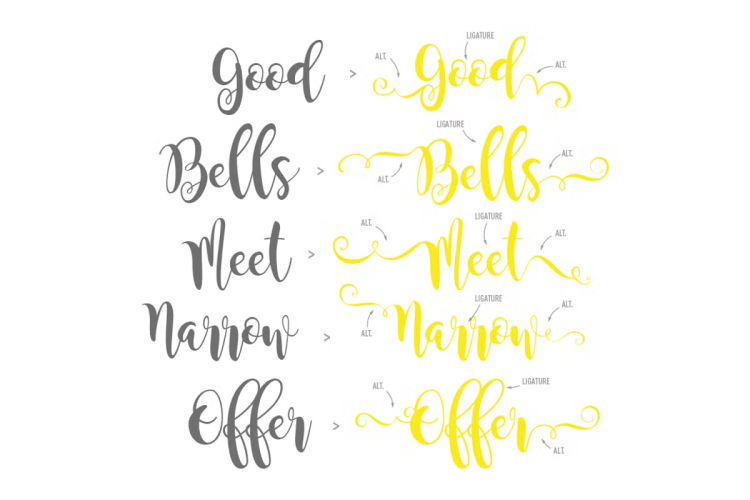 LIGATURE
ALT. ALT.
Good > Good
LIGATURE
ALT.
Bells > Bells
ALT.
LIGATURE
ALT. ALT.
Meet > Meet
LIGATURE
ALT.
Narrow > Narrow
ALT.
LIGATURE
ALT.
Offer > Offer
ALT.